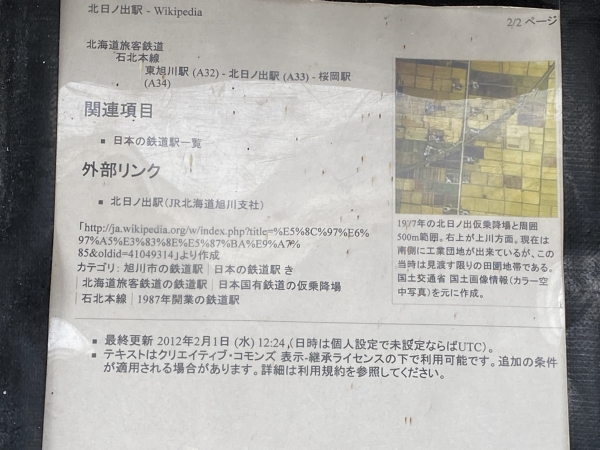 北日ノ出駅 - Wikipedia
2/2 ページ
北海道旅客鉄道
石北本線
東旭川駅 (A32) - 北日ノ出駅 (A33) - 桜岡駅
(A34)
関連項目
■ 日本の鉄道駅一覧
外部リンク
■ 北日ノ出駅(JR北海道旭川支社)
「http://ja.wikipedia.org/w/index.php?title=%E5%8C%97%E6%
97%A5%E3%83%8E%E5%87%BA%E9%A7%
85&oldid=41049314」より作成
カテゴリ: 旭川市の鉄道駅 | 日本の鉄道駅 き
| 北海道旅客鉄道の鉄道駅 | 日本国有鉄道の仮乗降場
| 石北本線 | 1987年開業の鉄道駅
1977年の北日ノ出仮乗降場と周囲
500m範囲。右上が上川方面。現在は
南側に工業団地が出来ているが、この
当時は見渡す限りの田園地帯である。
国土交通省 国土画像情報(カラー空
中写真)を元に作成。
■ 最終更新 2012年2月1日 (水) 12:24 (日時は個人設定で未設定ならばUTC)。
■ テキストはクリエイティブ・コモンズ 表示-継承ライセンスの下で利用可能です。追加の条件
が適用される場合があります。詳細は利用規約を参照してください。